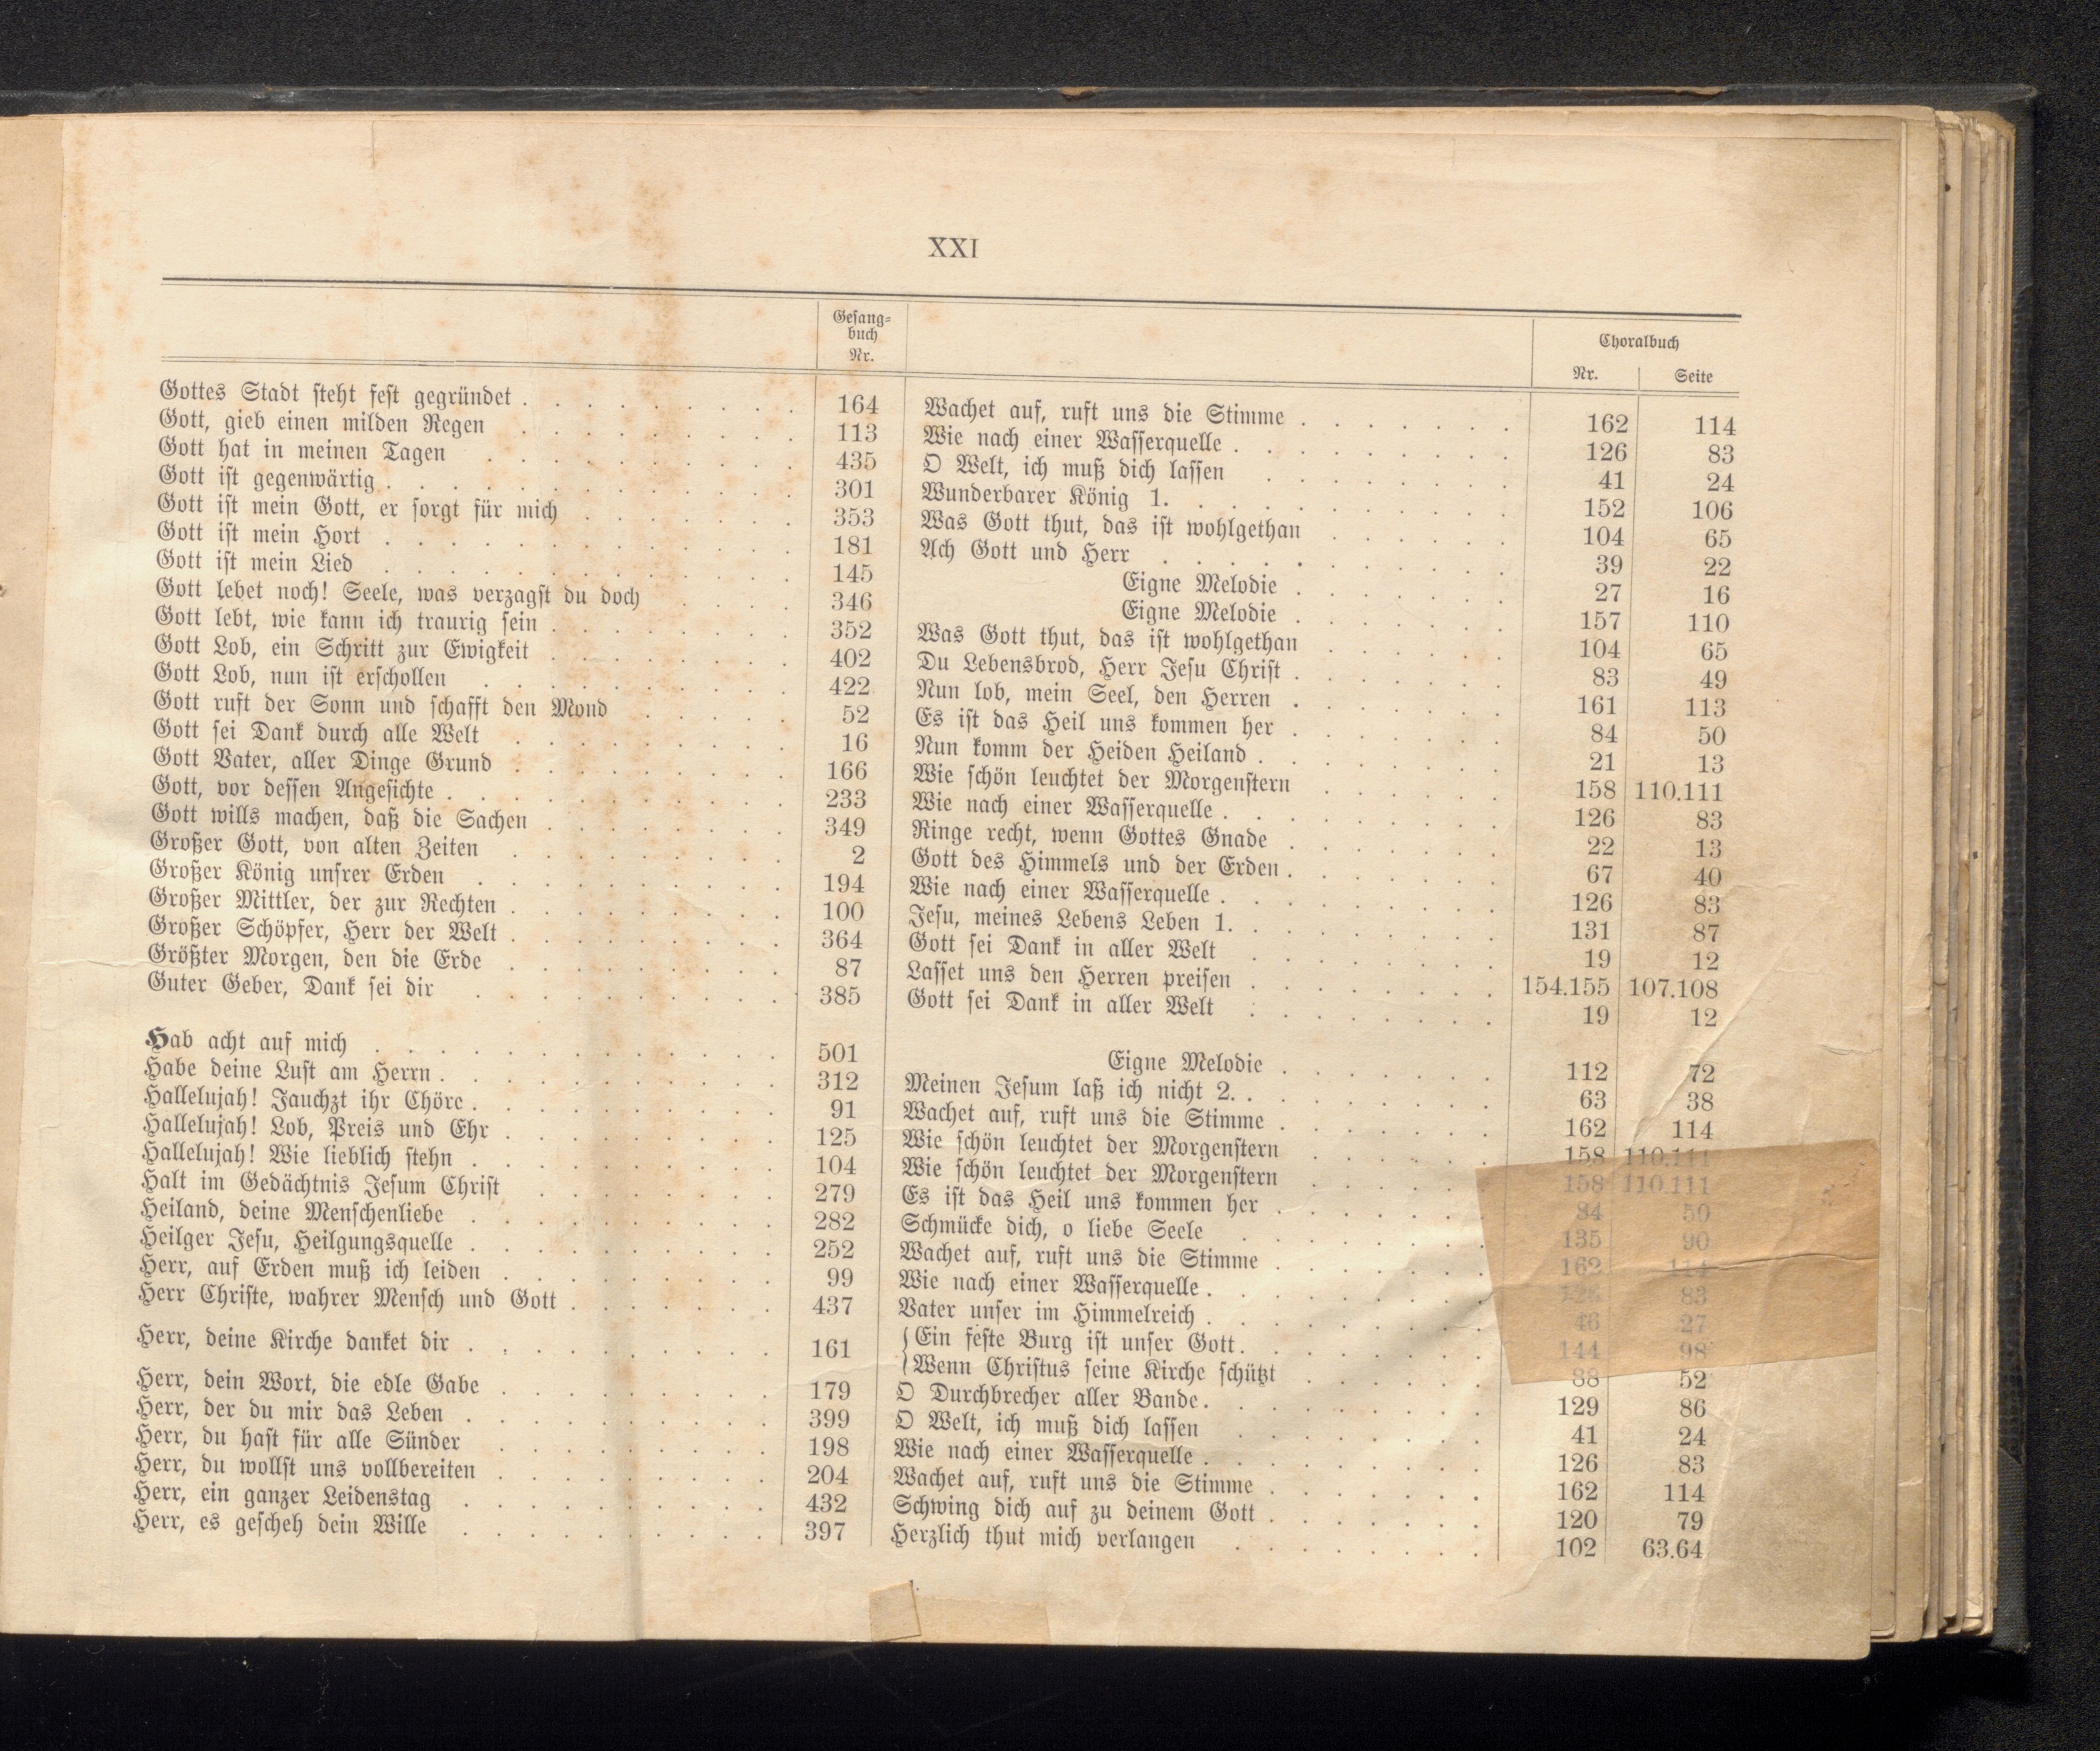 XXI
Gesang=
buch
Nr.
Choralbuch
Nr. Seite
Gottes Stadt steht fest gegründet . 164 Wachet auf, ruft uns die Stimme . 162 114
Gott, gieb einen milden Regen . 113 Wie nach einer Wasserquelle . 126 83
Gott hat in meinen Tagen . 435 O Welt, ich muß dich lassen . 41 24
Gott ist gegenwärtig . 301 Wunderbarer König 1. . 152 106
Gott ist mein Gott, er sorgt für mich . 353 Was Gott thut, das ist wohlgethan . 104 65
Gott ist mein Hort . 181 Ach Gott und Herr . 39 22
Gott ist mein Lied . 145 Eigne Melodie . 27 16
Gott lebet noch! Seele, was verzagst du doch . 346 Eigne Melodie . 157 110
Gott lebt, wie kann ich traurig sein . 352 Was Gott thut, das ist wohlgethan . 104 65
Gott Lob, ein Schritt zur Ewigkeit . 402 Du Lebensbrod, Herr Jesu Christ . 83 49
Gott Lob, nun ist erschollen . 422 Nun lob, mein Seel, den Herren . 161 113
Gott ruft der Sonn und schafft den Mond . 52 Es ist das Heil uns kommen her . 84 50
Gott sei Dank durch alle Welt . 16 Nun komm der Heiden Heiland . 21 13
Gott Vater, aller Dinge Grund . 166 Wie schön leuchtet der Morgenstern . 158 110.111
Gott, vor dessen Angesichte . 233 Wie nach einer Wasserquelle . 126 83
Gott wills machen, daß die Sachen . 349 Ringe recht, wenn Gottes Gnade . 22 13
Großer Gott, von alten Zeiten . 2 Gott des Himmels und der Erden . 67 40
Großer König unsrer Erden . 194 Wie nach einer Wasserquelle . 126 83
Großer Mittler, der zur Rechten . 100 Jesu, meines Lebens Leben 1. . 131 87
Großer Schöpfer, Herr der Welt . 364 Gott sei Dank in aller Welt . 19 12
Größter Morgen, den die Erde . 87 Lasset uns den Herren preisen . 154.155 107.108
Guter Geber, Dank sei dir . 385 Gott sei Dank in aller Welt . 19 12
Hab acht auf mich . 501 Eigne Melodie . 112 72
Habe deine Lust am Herrn . 312 Meinen Jesum laß ich nicht 2. . 63 38
Hallelujah! Jauchzt ihr Chöre . 91 Wachet auf, ruft uns die Stimme . 162 114
Hallelujah! Lob, Preis und Ehr . 125 Wie schön leuchtet der Morgenstern . 158 110.111
Hallelujah! Wie lieblich stehn . 104 Wie schön leuchtet der Morgenstern . 158 110.111
Halt im Gedächtnis Jesum Christ . 279 Es ist das Heil uns kommen her . 84 50
Heiland, deine Menschenliebe . 282 Schmücke dich, o liebe Seele . 135 90
Heilger Jesu, Heilgungsquelle . 252 Wachet auf, ruft uns die Stimme . 162 114
Herr, auf Erden muß ich leiden . 99 Wie nach einer Wasserquelle . 126 83
Herr Christe, wahrer Mensch und Gott . 437 Vater unser im Himmelreich . 46 27
Herr, deine Kirche danket dir . 161 {Ein feste Burg ist unser Gott . 144 98
{Wenn Christus seine Kirche schützt . 88 52
Herr, dein Wort, die edle Gabe . 179 O Durchbrecher aller Bande . 129 86
Herr, der du mir das Leben . 399 O Welt, ich muß dich lassen . 41 24
Herr, du hast für alle Sünder . 198 Wie nach einer Wasserquelle . 126 83
Herr, du wollst uns vollbereiten . 204 Wachet auf, ruft uns die Stimme . 162 114
Herr, ein ganzer Leidenstag . 432 Schwing dich auf zu deinem Gott . 120 79
Herr, es gescheh dein Wille . 397 Herzlich thut mich verlangen . 102 63.64